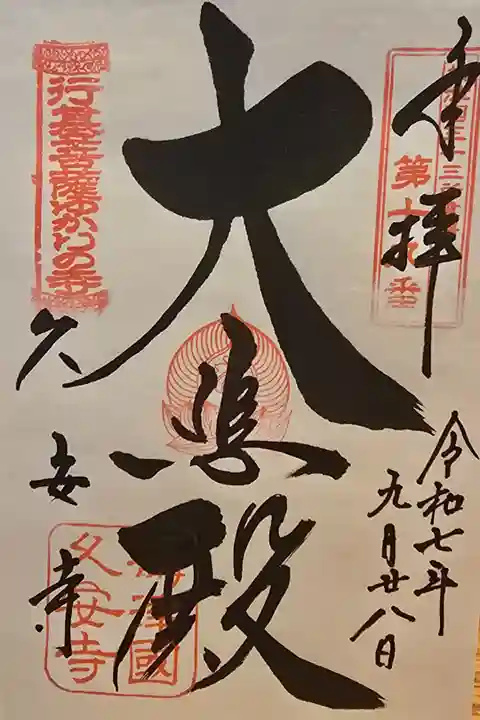 奉拝
令和七年
九月廿八日
大悲殿
行基菩薩ゆかりの寺
久安寺
攝津國
久安寺